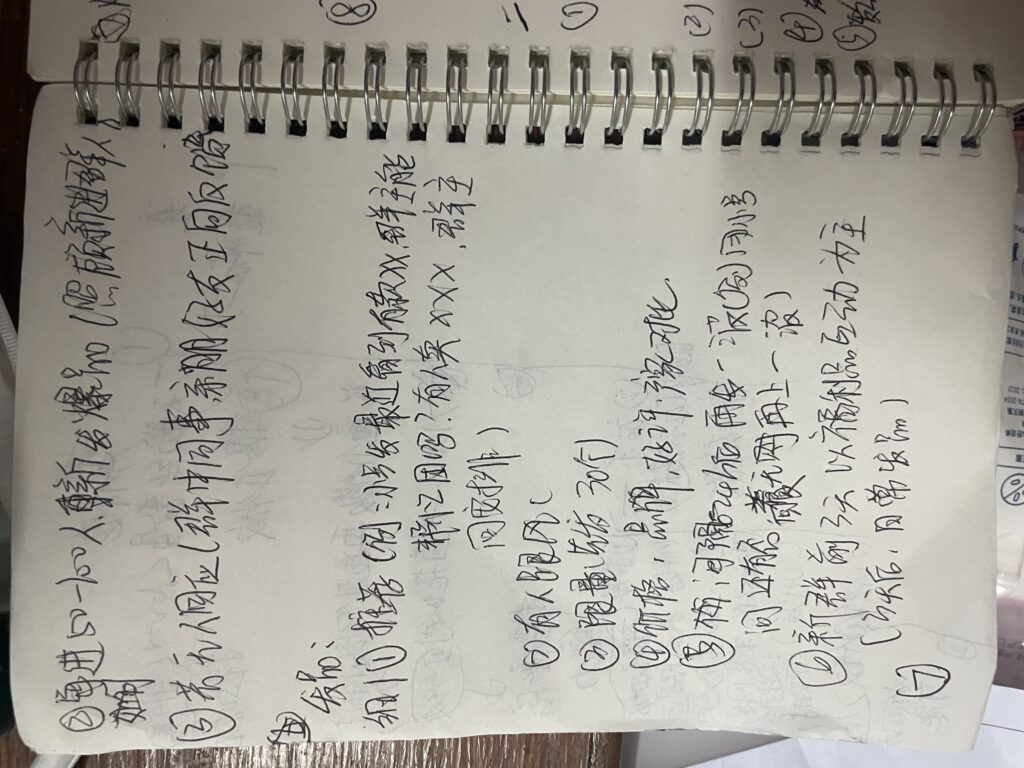 ②每进50-100人,重新发爆品(照顾新进群人)
③若无人回应(群中同事,亲朋好友正向反馈
发品:
组1①推荐(例:小号发最近看到有款xx,群主能
帮忙团吗?有人卖xxx,群主
回安排)
②有人跟风(
③限量(先发30个)
④价格,品牌,好评,对比.
⑤间隔24h后再发一波(发)用小号
问还有否 再上一波)
⑥新群前3天以福利品互动为主
(3天后,日常发品)
⑦
⑧
二
①
(2)
(3)
④
⑤